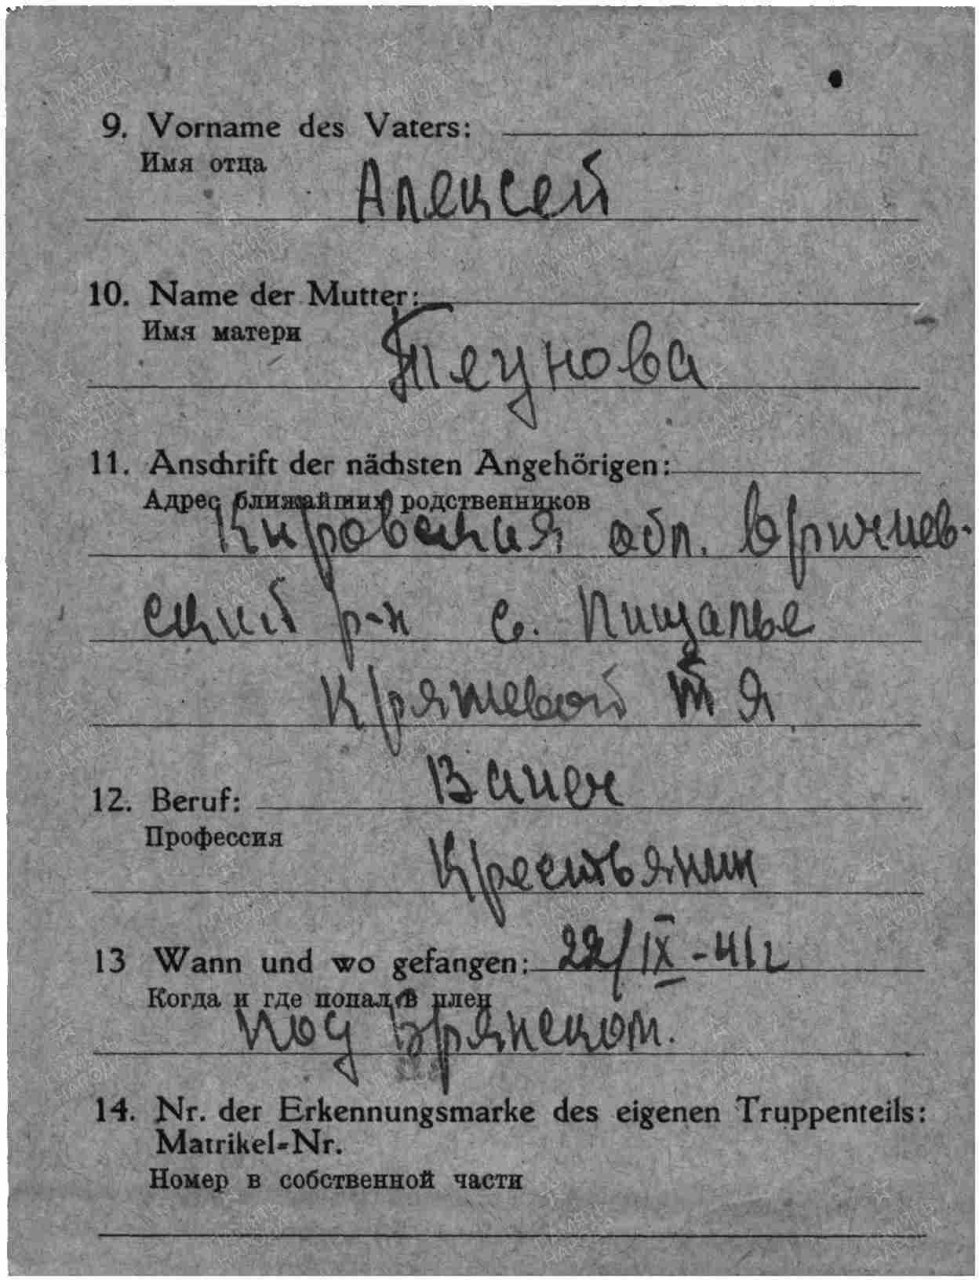 9. Vorname des Vaters:
Имя отца
Алексей
10. Name der Mutter:
Имя матери
11. Anschrift der nächsten Angehörigen:
Адрес ближайших родственников
Кировская обл. Вричнев-
ский р-н с. Пищалье
12. Beruf:
Профессия
Крестьянин
13 Wann und wo gefangen: 22/IX-41г
Когда и где попал в плен
под Брянском.
14. Nr. der Erkennungsmarke des eigenen Truppenteils:
Matrikel-Nr.
Номер в собственной части